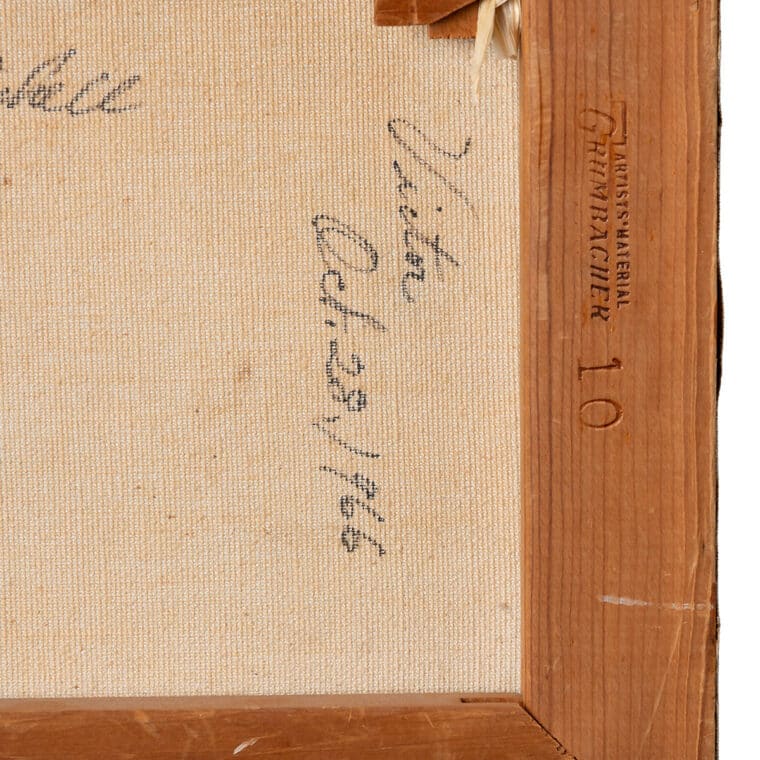 Victor
Oct. 28, 1966
ARTISTS' MATERIAL
GRUMBACHER
10